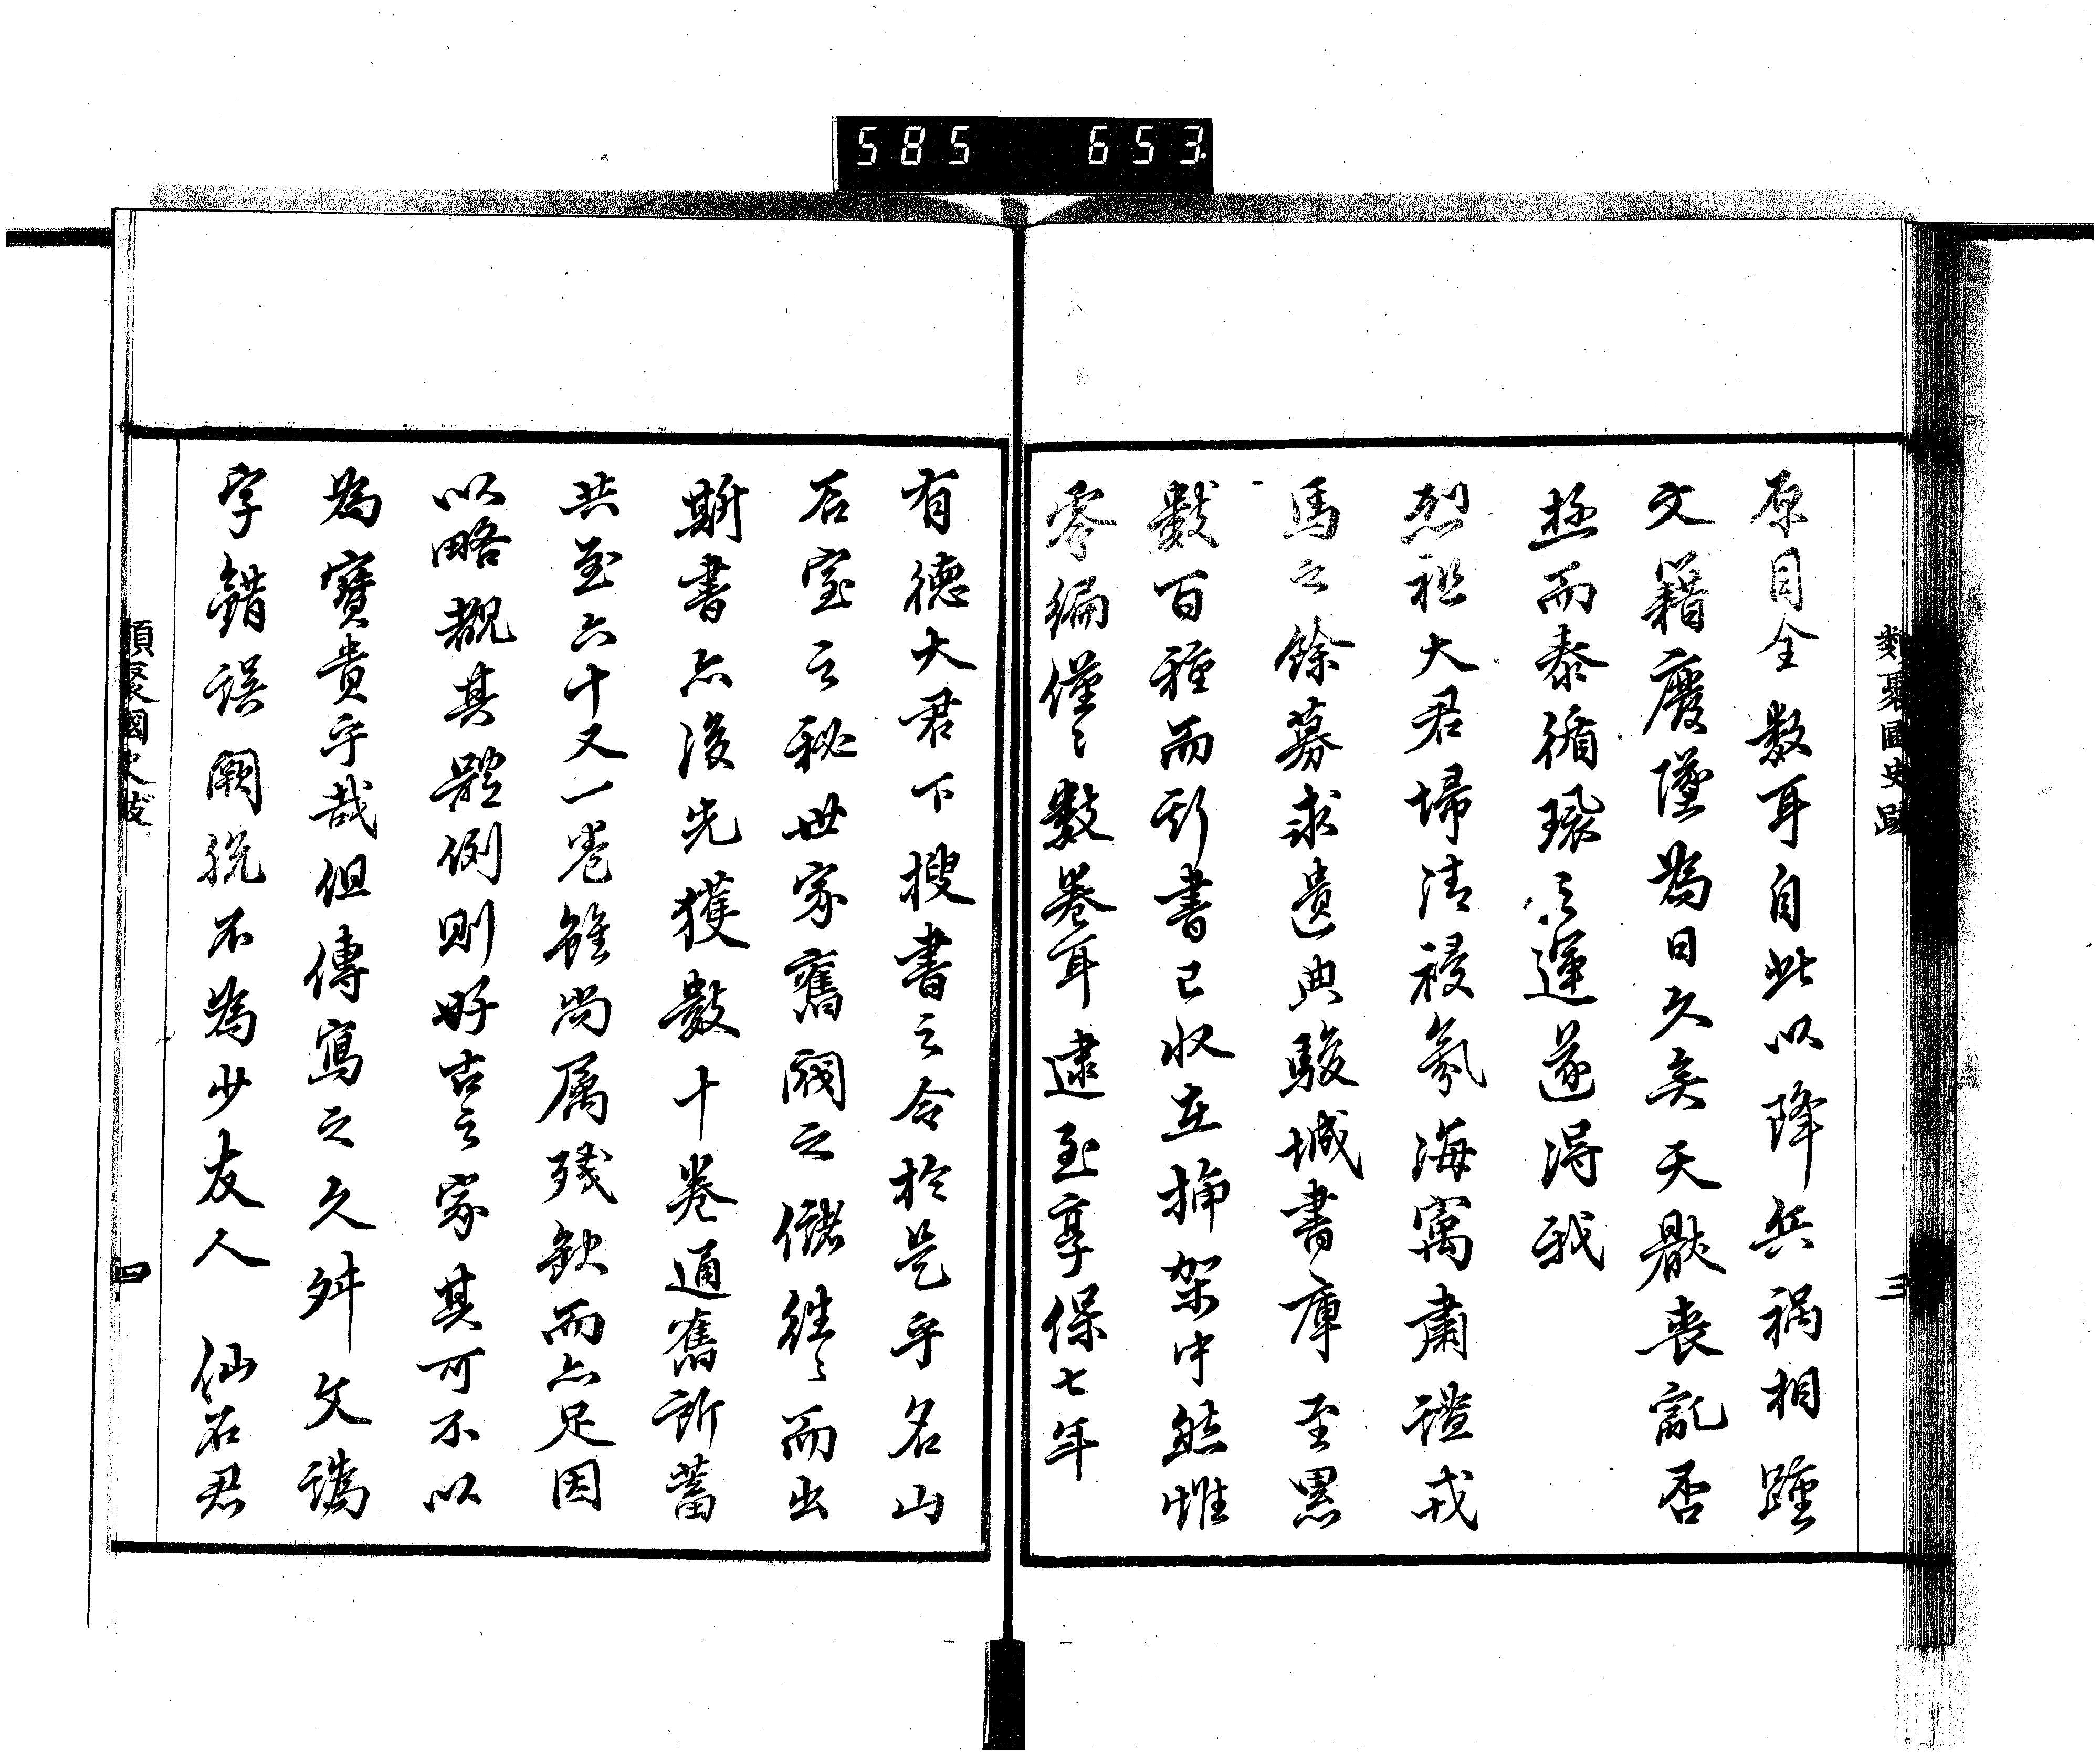 585 653
類聚國史跋 三
原目全数耳自此以降兵禍相踵
文籍廢墜為日久矣天厭喪乱否
極而泰循環之運遂得我
烈祖大君掃清祲氛海寓肅謐戎
馬之餘募求遺典駿城書庫至累
数百種而斯書已收在插架中然惟
零編僅〻数卷耳逮至享保七年
有德大君下搜書之令於是乎名山
石室之秘世家舊閥之儲継〻而出
斯書亦後先獲数十卷通舊所蓄
共至六十又一卷雖尚属残欽而亦足因
以略觀其體例則好古之家其可不以
為寶貴乎哉但傳寫之久舛文譌
字錯誤闕脱不為少友人 仙石君
類聚國史跋 四